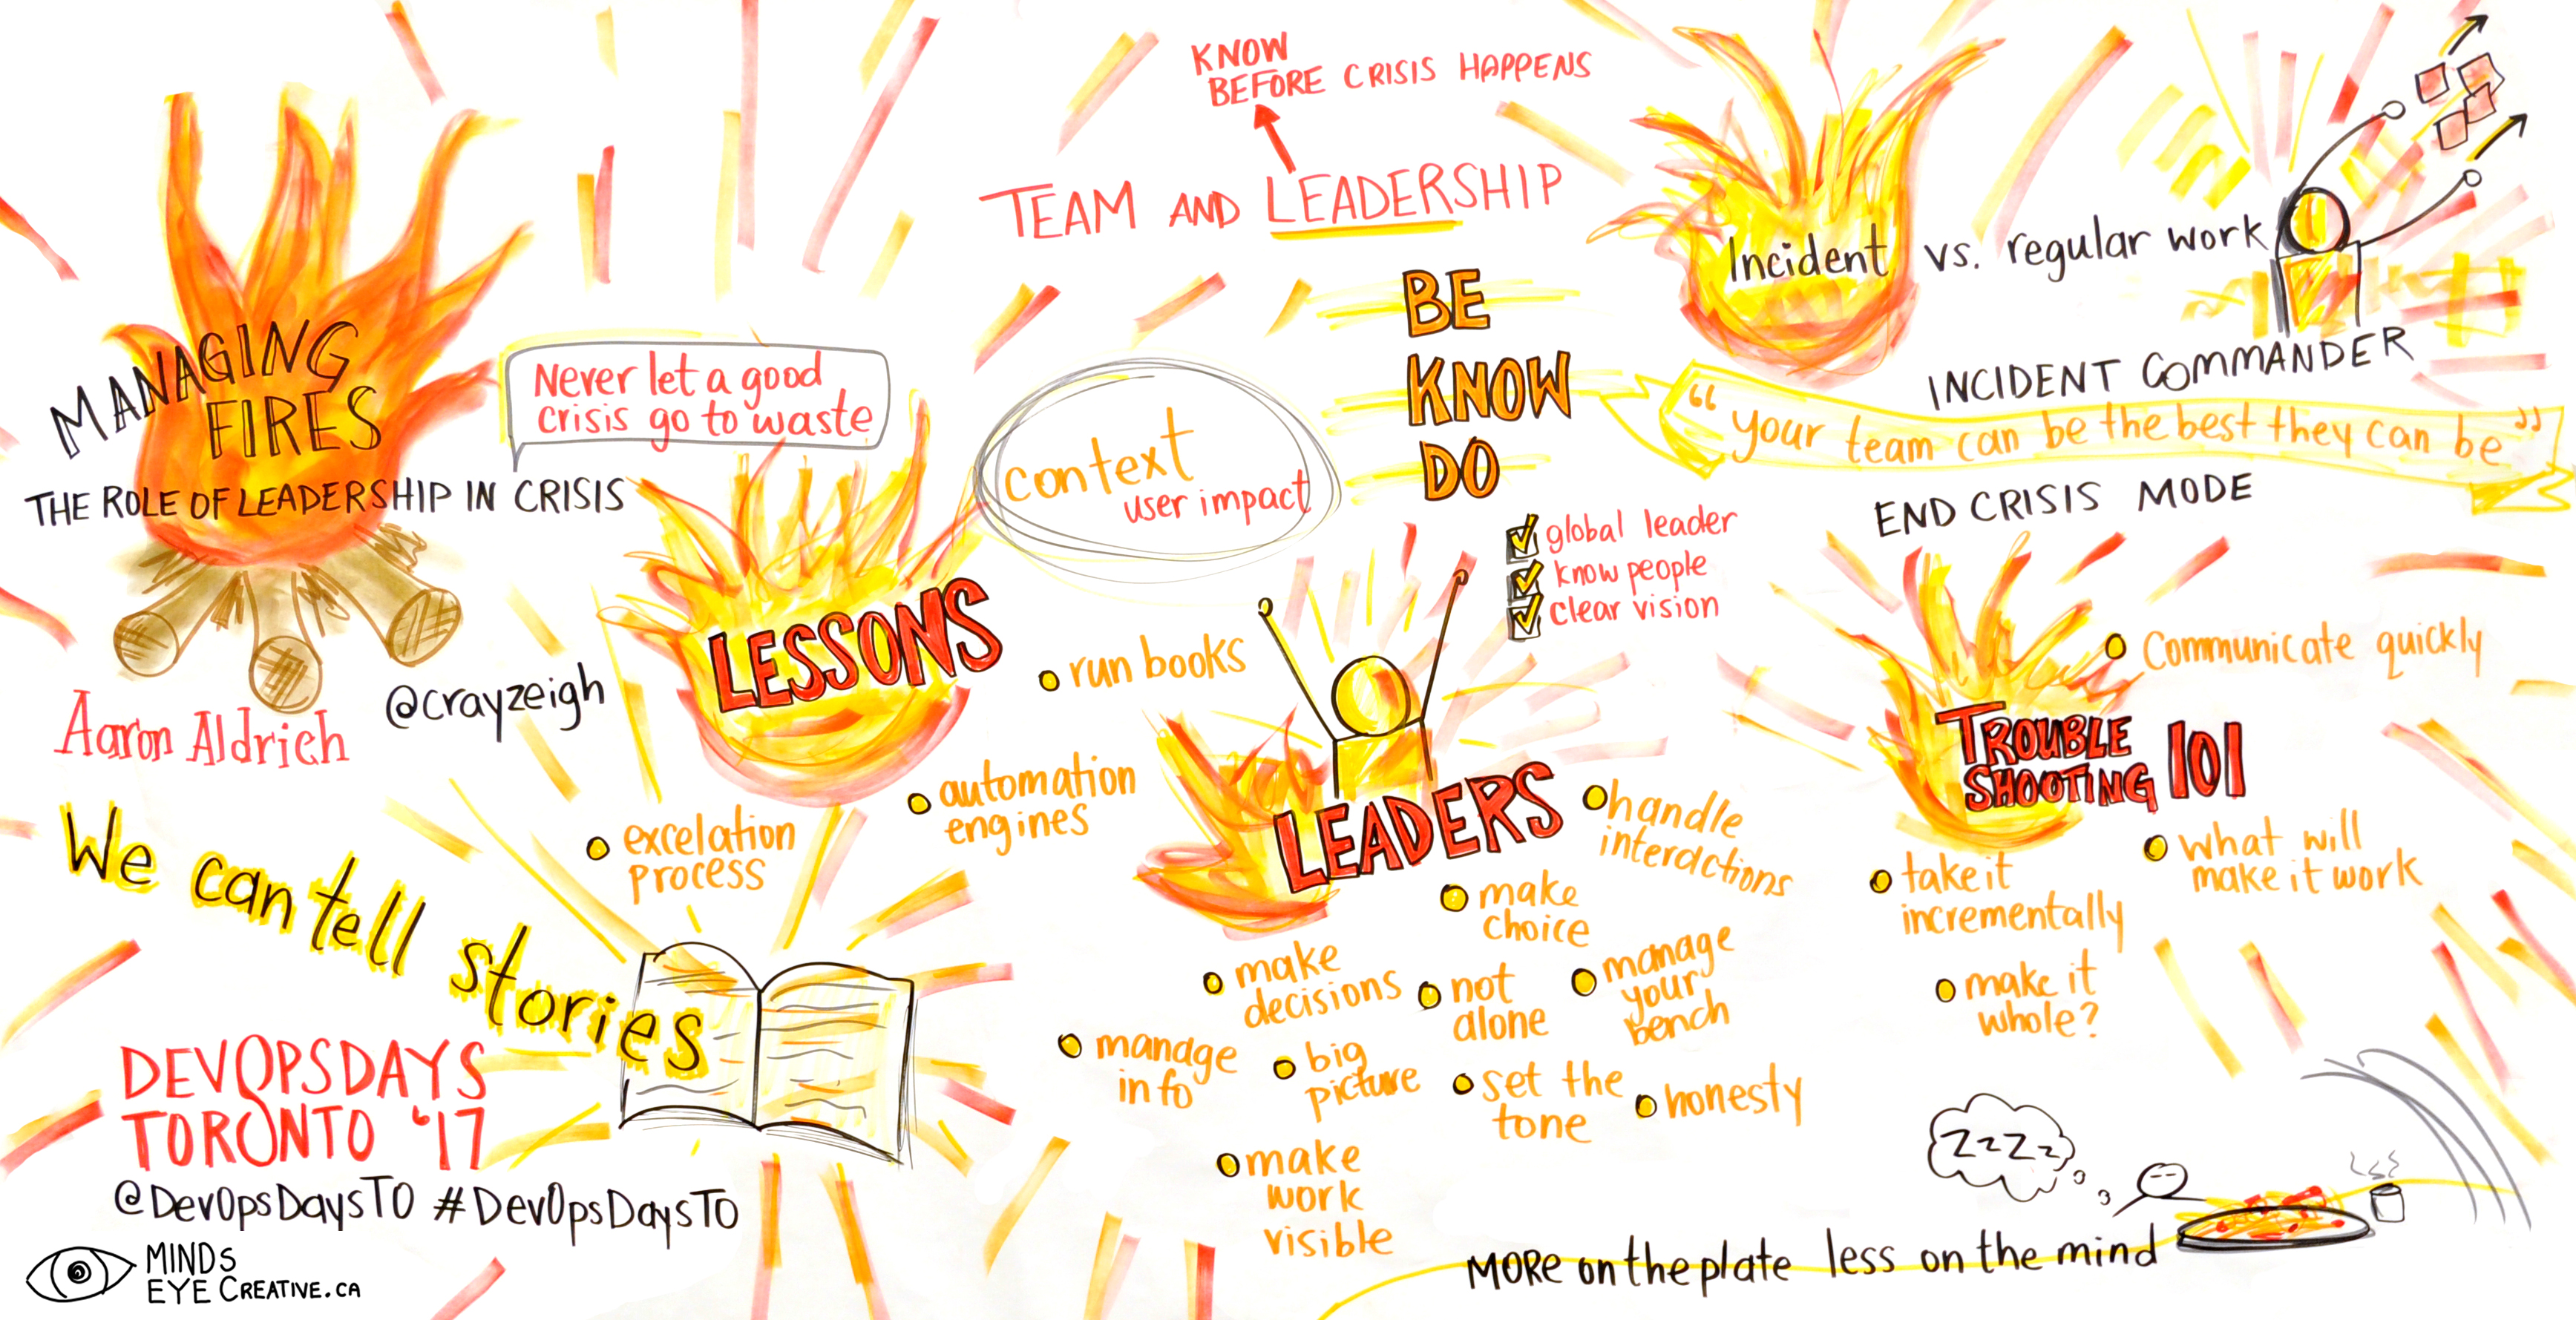 MANAGING
FIRES
THE ROLE OF LEADERSHIP IN CRISIS
Aaron Aldrich
@crayzeigh
Never let a good
crisis go to waste
We can tell stories
DEVOPSDAYS
TORONTO '17
@DevOpsDaysTO #DevOpsDaysTO
MINDS
EYE CREATIVE.CA
LESSONS
run books
automation
engines
excelation
process
KNOW
BEFORE CRISIS HAPPENS
TEAM AND LEADERSHIP
context
user impact
BE
KNOW
DO
global leader
know people
clear vision
LEADERS
handle
interactions
make
choice
make
decisions
not
alone
manage
your
bench
manage
info
big
picture
set the
tone
honesty
make
work
visible
Incident vs. regular work
INCIDENT COMMANDER
“your team can be the best they can be”
END CRISIS MODE
TROUBLE
SHOOTING 101
Communicate quickly
what will
make it work
take it
incrementally
make it
whole?
ZzZz
MORE on the plate less on the mind